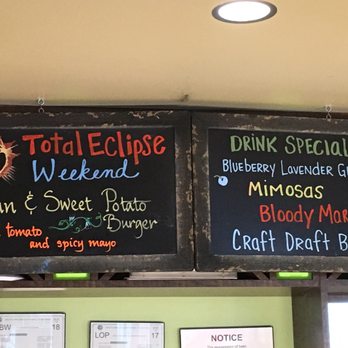 Total Eclipse
Weekend
& Sweet Potato
Burger
tomato
and spicy mayo
DRINK SPECIAL
BLUEBERRY LAVENDER
MIMOSAS
BLOODY MAR
CRAFT DRAFT B
BW 18
LOP 17
NOTICE